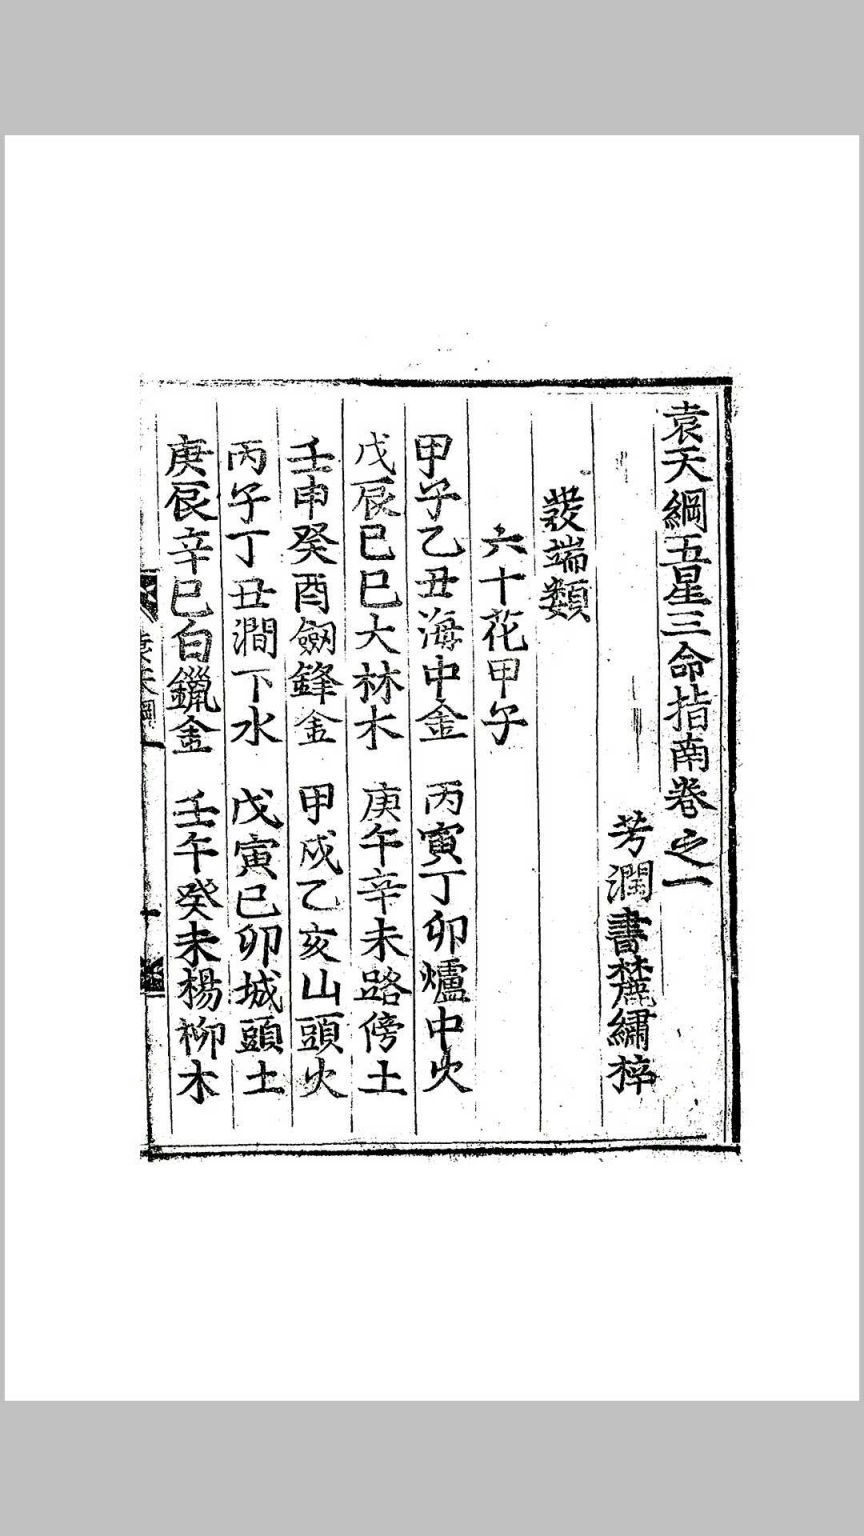 袁天綱五星三命指南卷之一
芳澗書麓繡梓
發端類
六十花甲子
甲子乙丑海中金 丙寅丁卯爐中火
戊辰己巳大林木 庚午辛未路傍土
壬申癸酉劒鋒金 甲戌乙亥山頭火
丙子丁丑澗下水 戊寅己卯城頭土
庚辰辛巳白鑞金 壬午癸未楊柳木
袁天綱